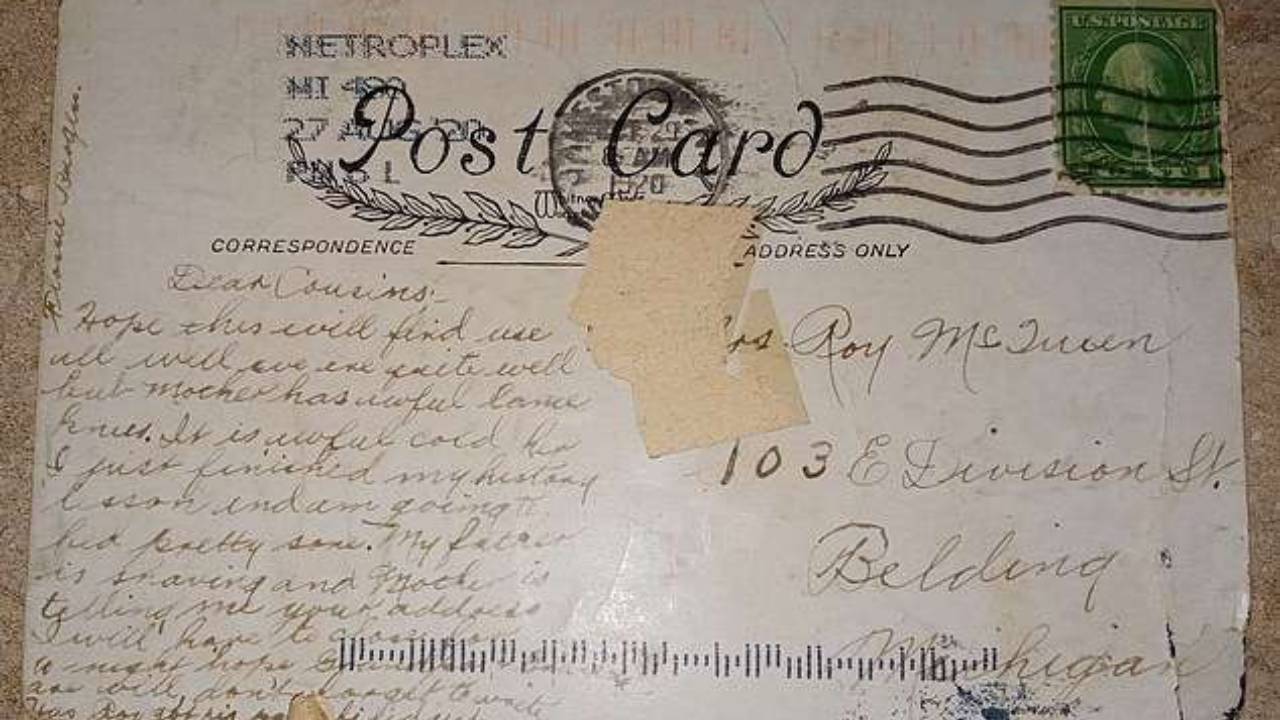 U.S. POSTAGE
METROPLEX
MI 480
27 AUG '20
PM 5 L
Post Card
29
6 AM
1920
CORRESPONDENCE
ADDRESS ONLY
Dear Cousins:-
Hope this will find use
all well we are quite well
but Mother has awful lame
knees. It is awful cold
I just finished my history
lesson and am going t
bed pretty sone. My father
is shaving and Mother is
telling me your address
I will have to close
a night hope
are will, don't forget to write
Roy get his pants fixed
Flossie Burgess
Roy McQueen
103 E Division St.
Belding
Michigan